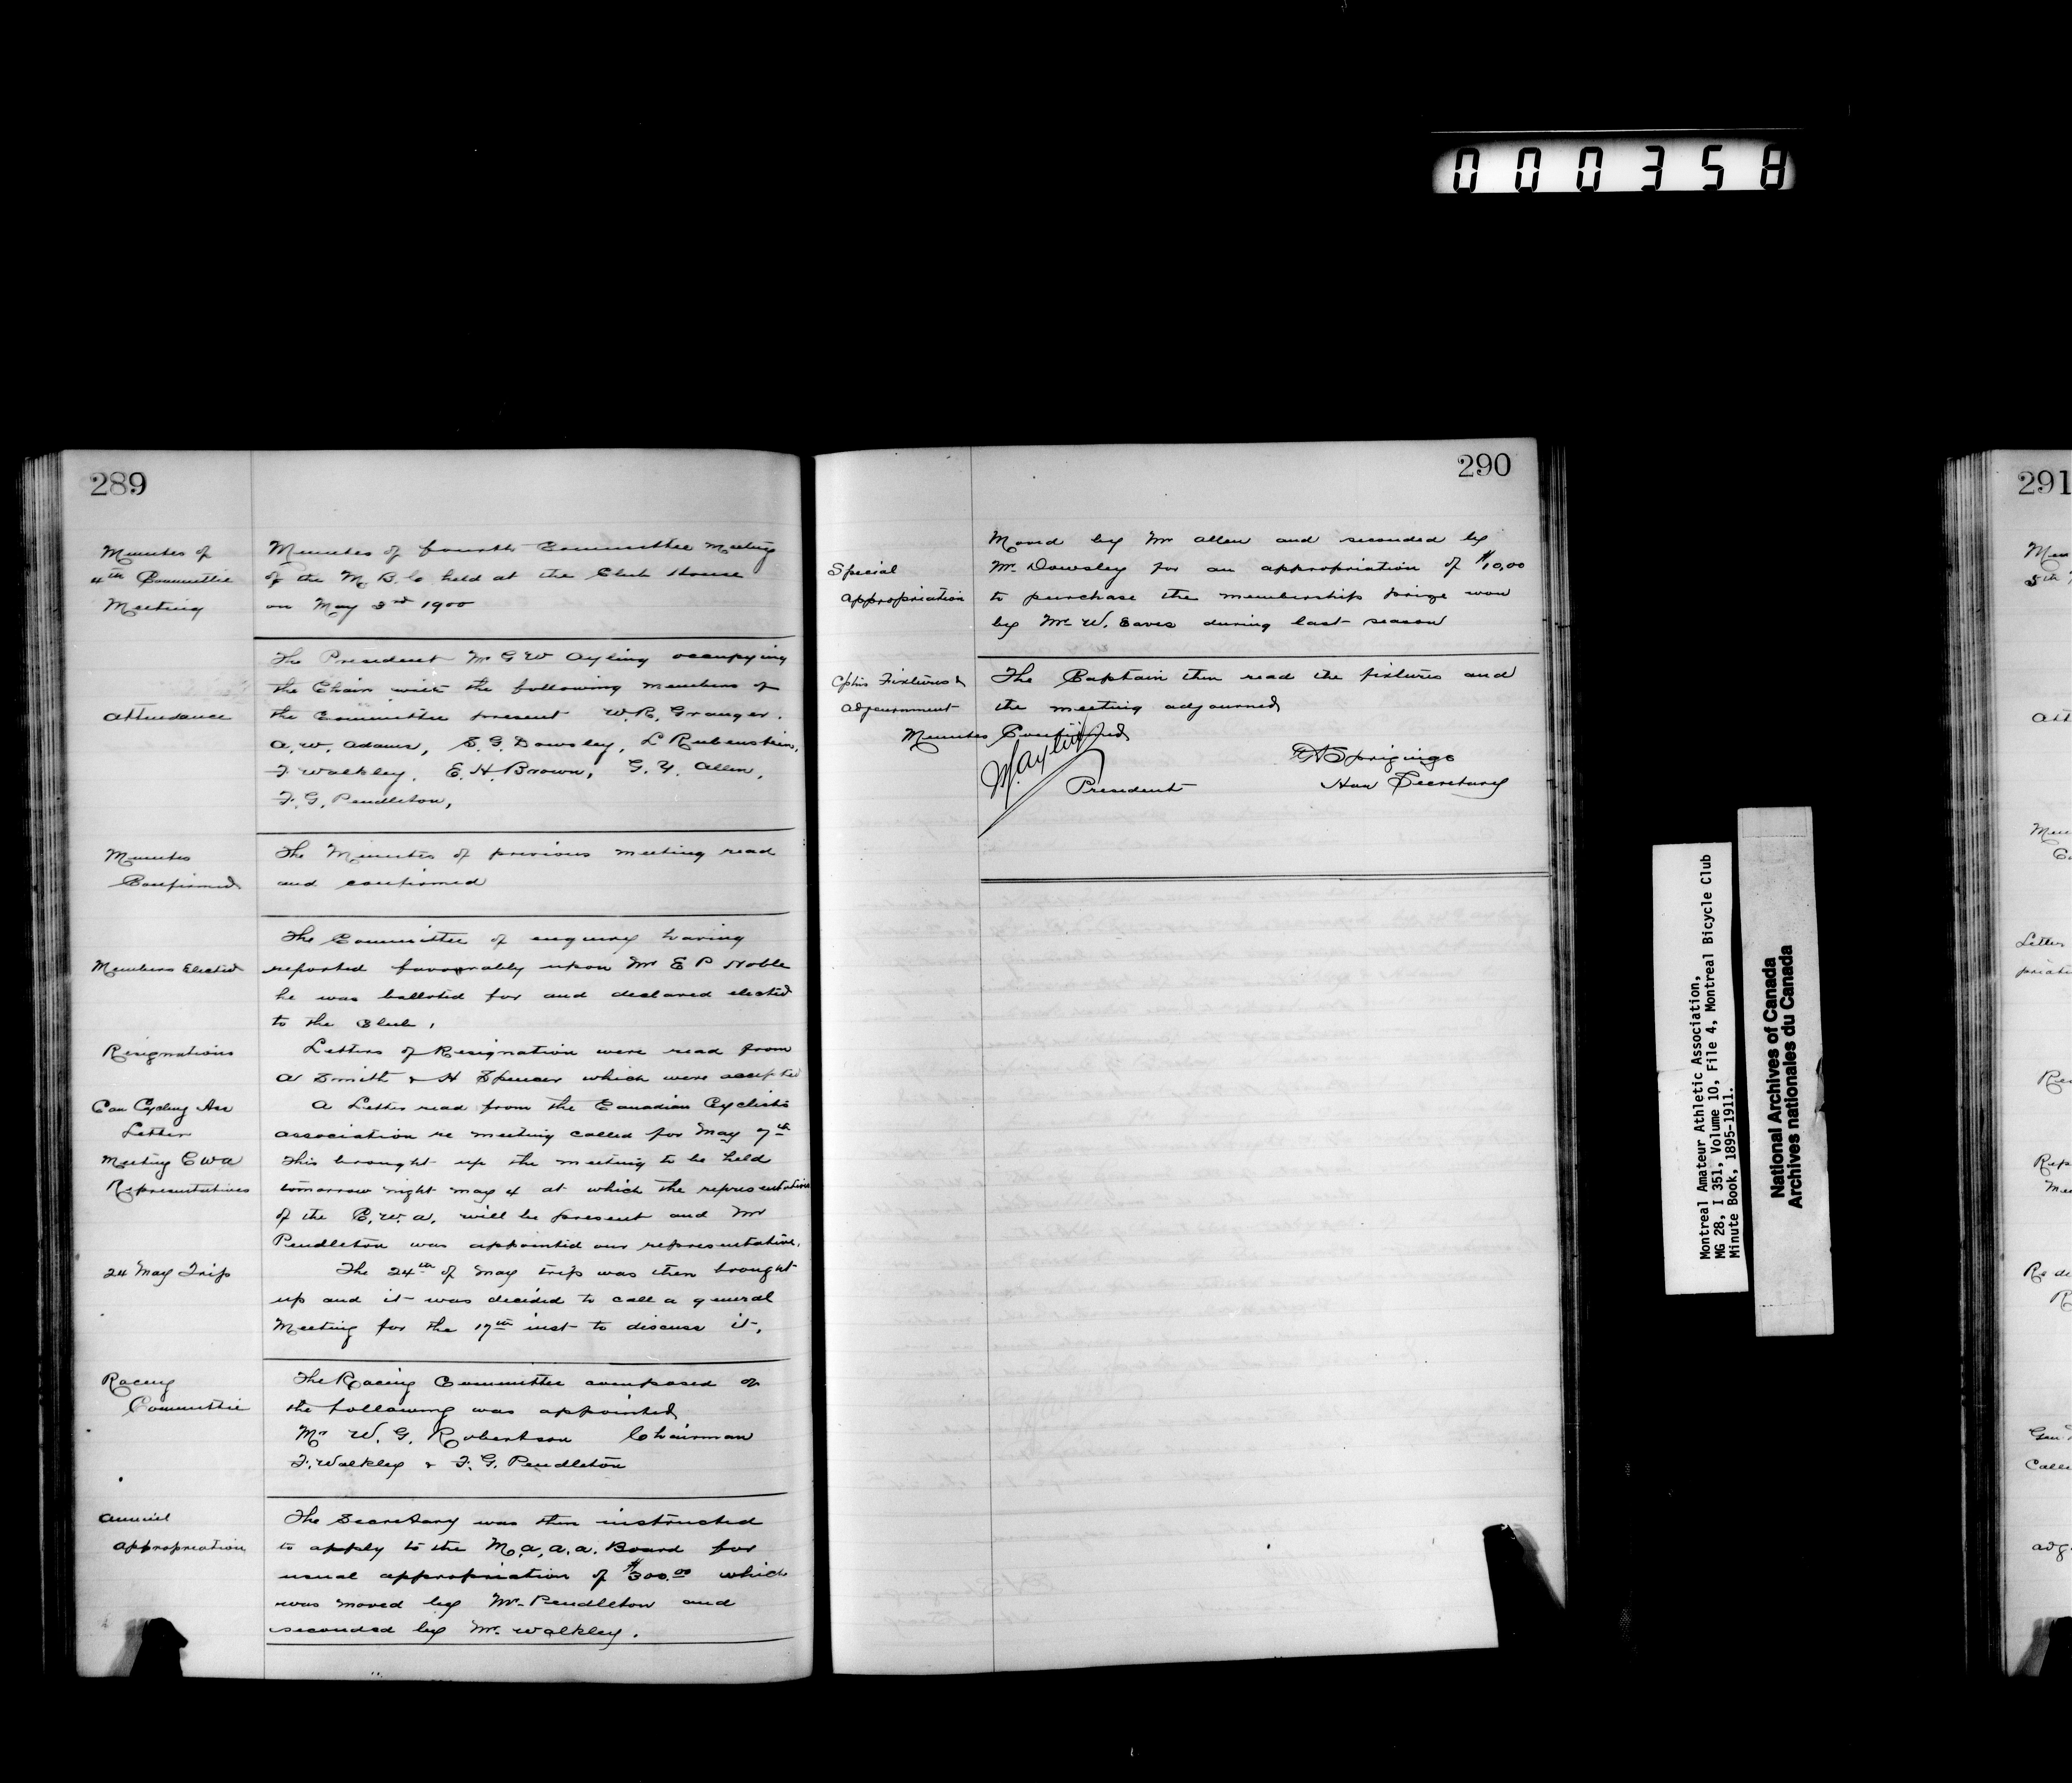 000358
289
Minutes of
4th Committee
Meeting
Minutes of fourth Committee Meeting
of the M. B. Co held at the Club House
on May 3rd 1900
Attendance
The President Mr G W Ayling occupying
the Chair with the following members of
the Committee present W. R. Granger.
A. W. Adams, S. G. Dowsley, L Rubenstein,
F Walkley. E. H. Brown, G. Y. Allen,
F. G. Pendleton,
Minutes
Confirmed
The Minutes of previous meeting read
and confirmed
Members Elected
The Committee of enquiry having
reported favourably upon Mr E P Noble
he was balloted for and declared elected
to the Club.
Resignations
Letters of Resignation were read from
A Smith & H Spencer which were accepted
Can Cycling Ass
Letter
A Letter read from the Canadian Cyclists
association re meeting called for May 7th
Meeting C W A
Representatives
This brought up the meeting to be held
tomorrow night May 4 at which the representatives
of the C. W. A. will be present and Mr
Pendleton was appointed our representative.
24 May Trip
The 24th of May trip was then brought
up and it was decided to call a general
Meeting for the 17th inst to discuss it.
Racing
Committee
The Racing Committee composed of
the following was appointed
Mr W. G. Robertson Chairman
F. Walkley & F. G. Pendleton
Annual
appropriation
The Secretary was then instructed
to apply to the M. A. A. A. Board for
usual appropriation of $300.00 which
was moved by Mr. Pendleton and
seconded by Mr. Walkley.
290
Special
appropriation
Moved by Mr Allen and seconded by
Mr. Dowsley for an appropriation of $10.00
to purchase the membership prize won
by Mr W. Eaves during last season
Cptns Fixtures &
Adjournment
The Captain then read the fixtures and
the meeting adjourned
Minutes Confirmed
President
Hon Secretary
Montreal Amateur Athletic Association,
MG 28, I 351, Volume 10, File 4, Montreal Bicycle Club
Minute Book, 1895-1911.
National Archives of Canada
Archives nationales du Canada
291
5th
Letter